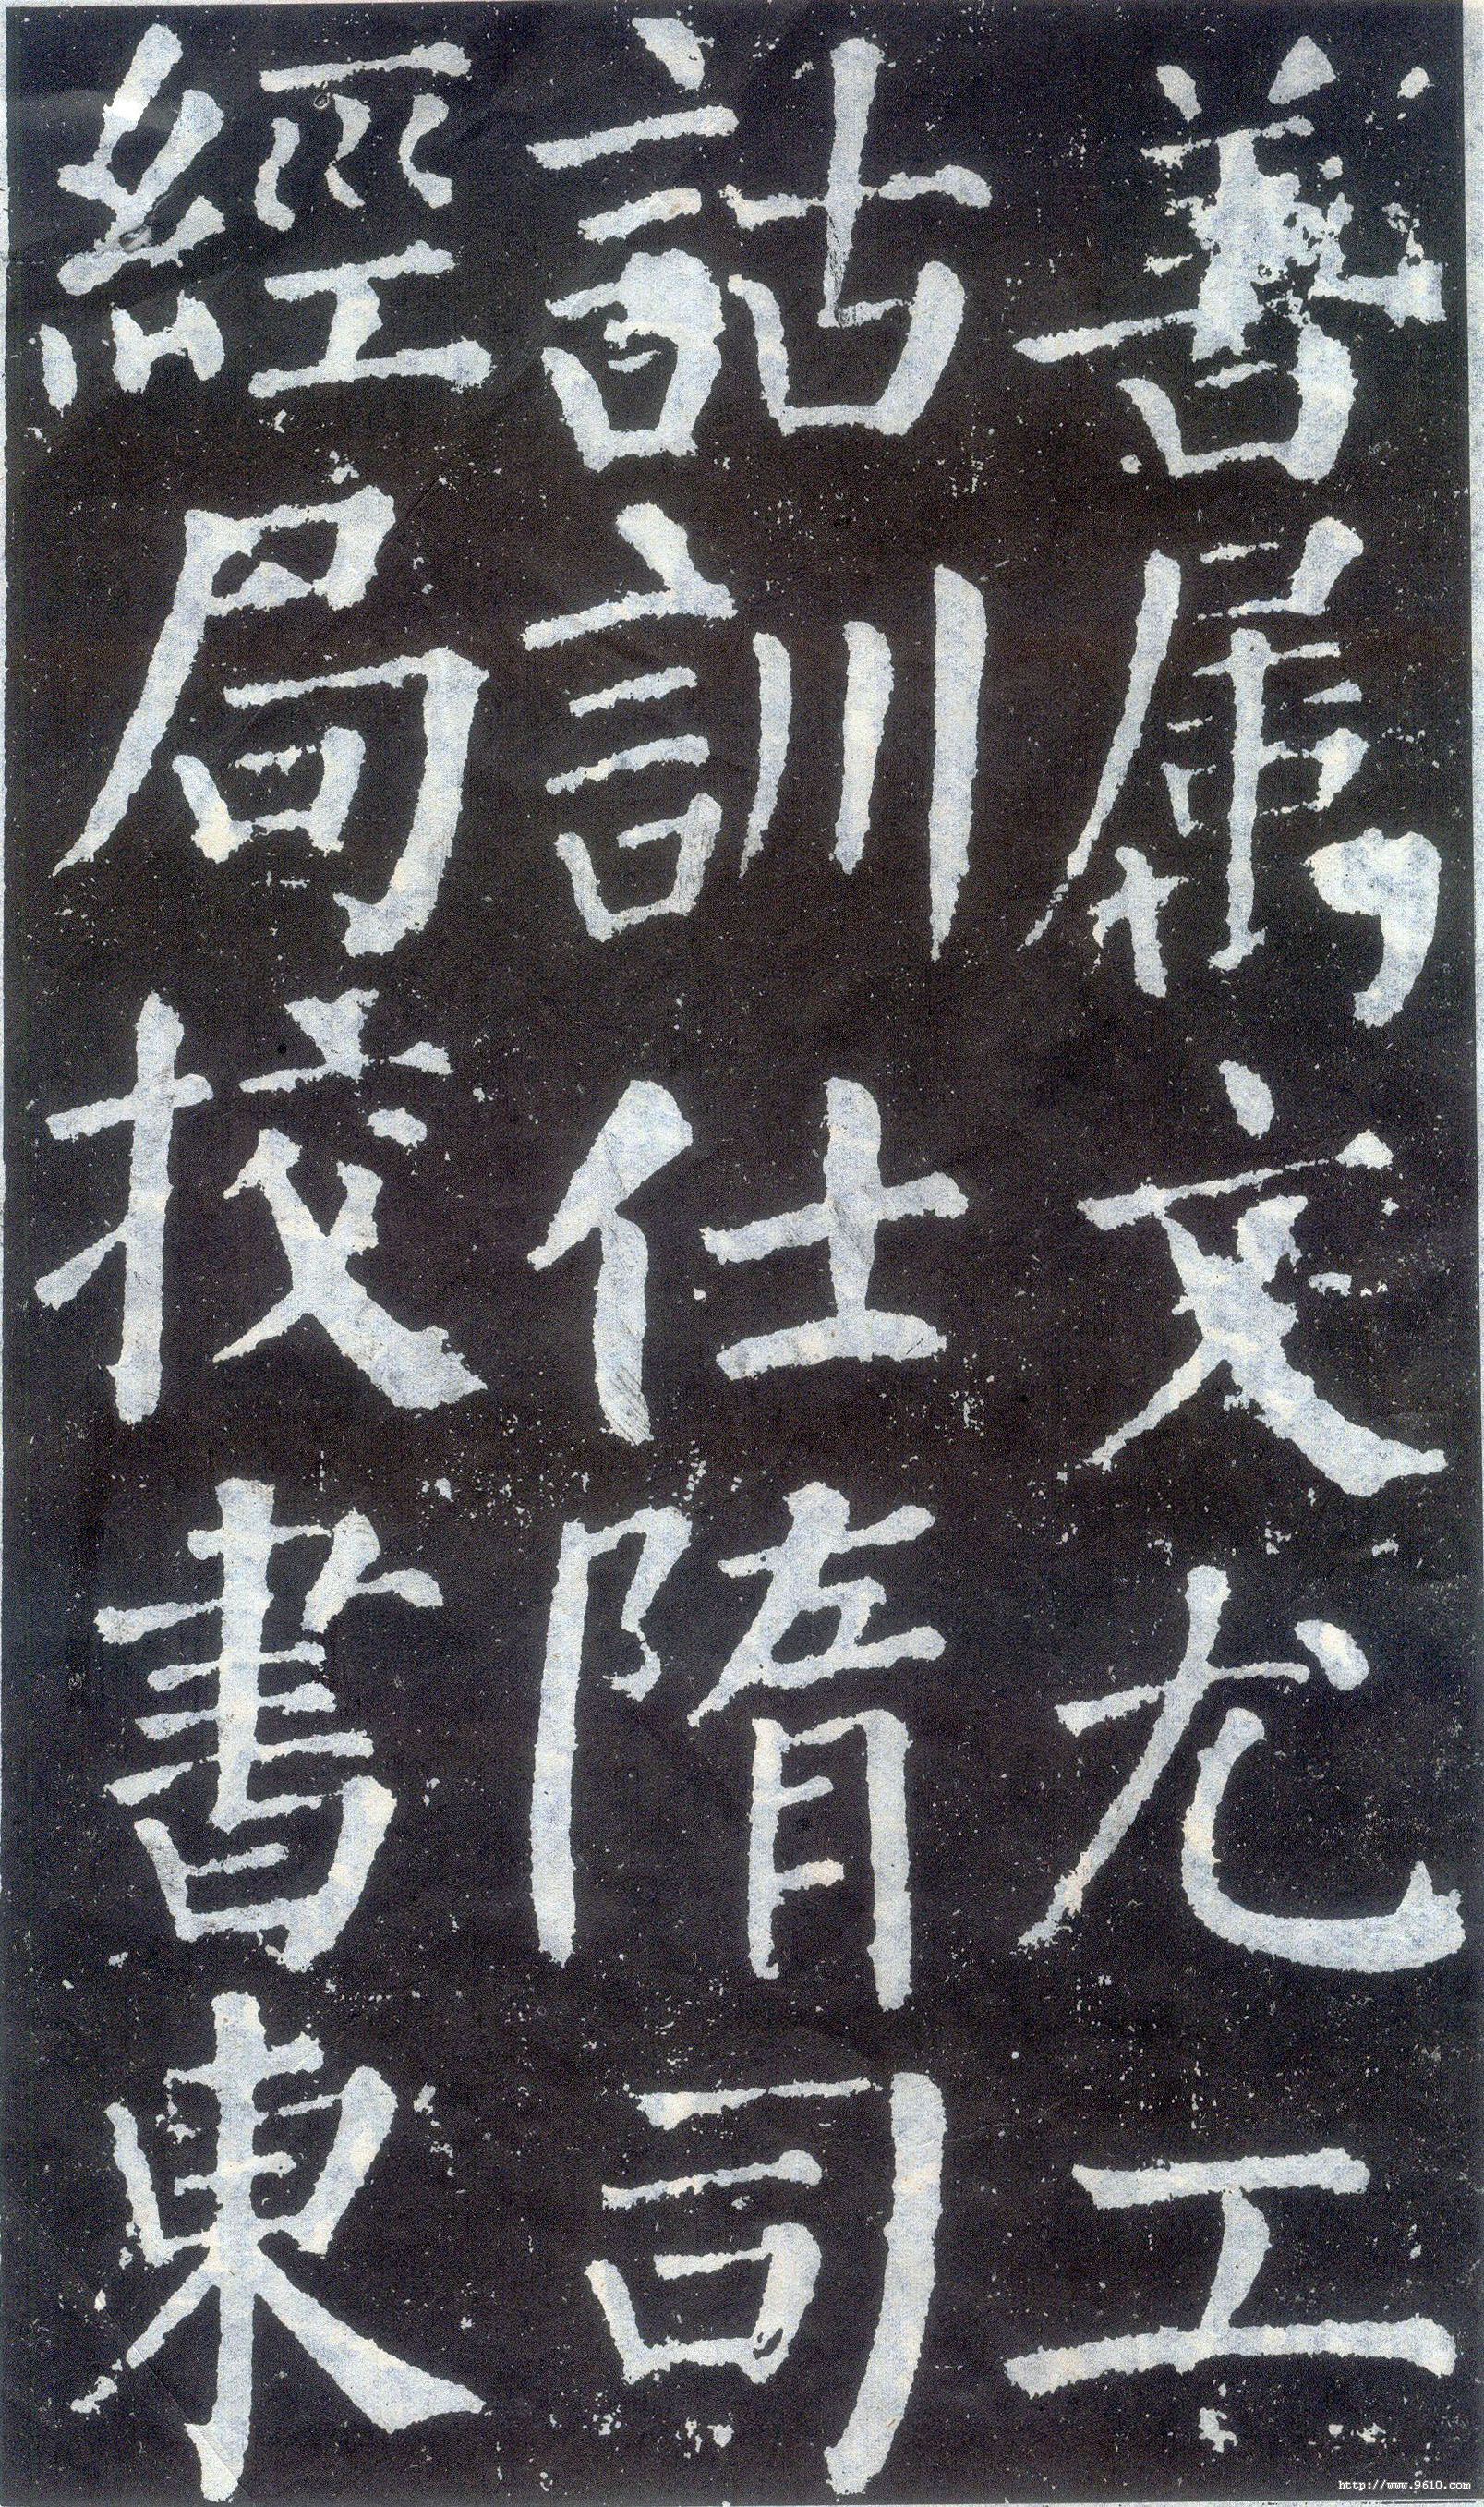 善属文尤工
詁訓仕隋司
經局挍書東
http://www.9610.com